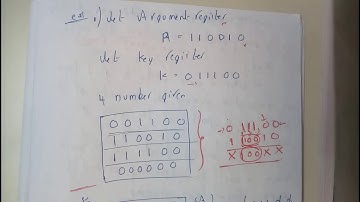 ex 1.) Let Argument register,
A = 1 1 0 0 1 0
Let key register
K = 0 1 1 1 0 0
4 number given
0 0 1 1 0 0
1 1 0 0 1 0
1 1 1 1 0 0
0 0 0 0 0 0
0 111, 00
1 100 10
X 100 X X
(A)